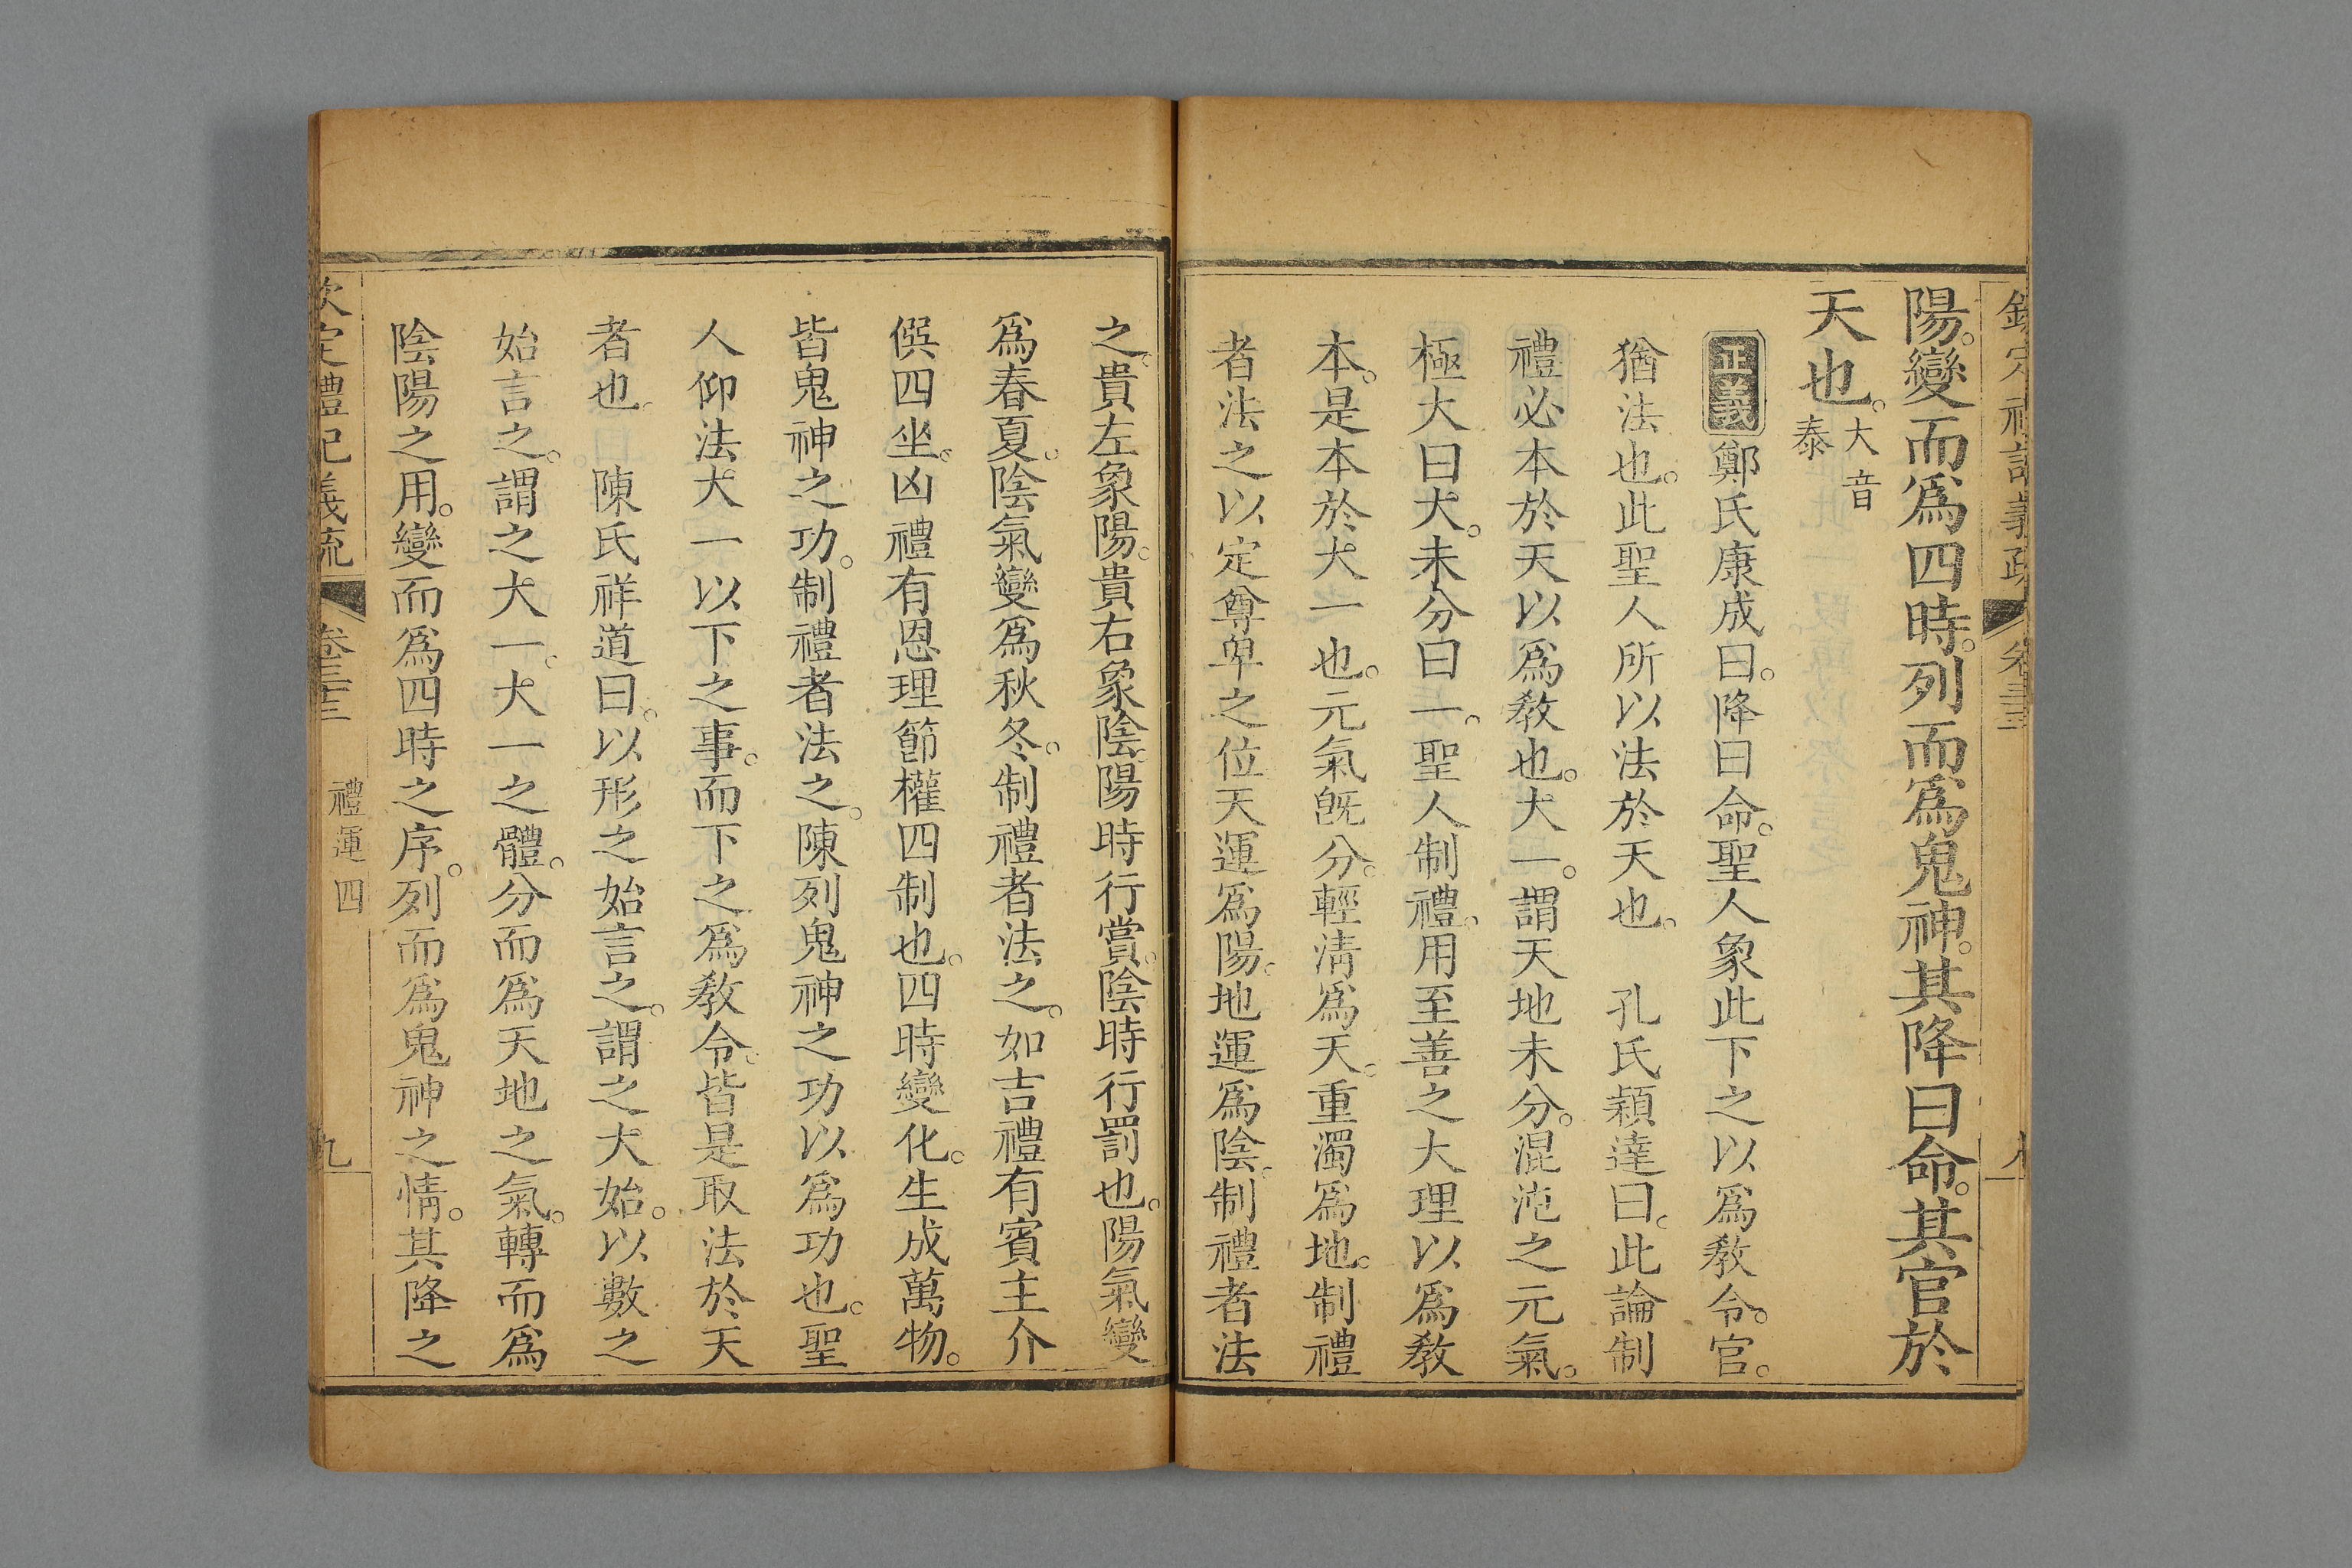 欽定禮記義疏 卷三十三 八
陽。變而爲四時。列而爲鬼神。其降曰命。其官於
天也。大音泰
正義 鄭氏康成曰。降曰命。聖人象此下之以爲敎令。官。
猶法也。此聖人所以法於天也。 孔氏穎達曰。此論制
禮必本於天以爲敎也。大一。謂天地未分。混沌之元氣。
極大曰大。未分曰一。聖人制禮。用至善之大理以爲敎
本。是本於大一也。元氣旣分。輕淸爲天。重濁爲地。制禮
者法之以定尊卑之位天運爲陽。地運爲陰。制禮者法
之。貴左象陽。貴右象陰陽時行賞。陰時行罰也。陽氣變
爲春夏。陰氣變爲秋冬。制禮者法之。如吉禮有賓主介
僎四坐。凶禮有恩理節權四制也。四時變化。生成萬物。
皆鬼神之功。制禮者法之。陳列鬼神之功以爲功也。聖
人仰法大一以下之事。而下之爲敎令。皆是取法於天
者也。 陳氏祥道曰。以形之始言之。謂之大始。以數之
始言之。謂之大一。大一之體。分而爲天地之氣。轉而爲
陰陽之用。變而爲四時之序。列而爲鬼神之情。其降之
欽定禮記義疏 卷三十三 禮運四 九